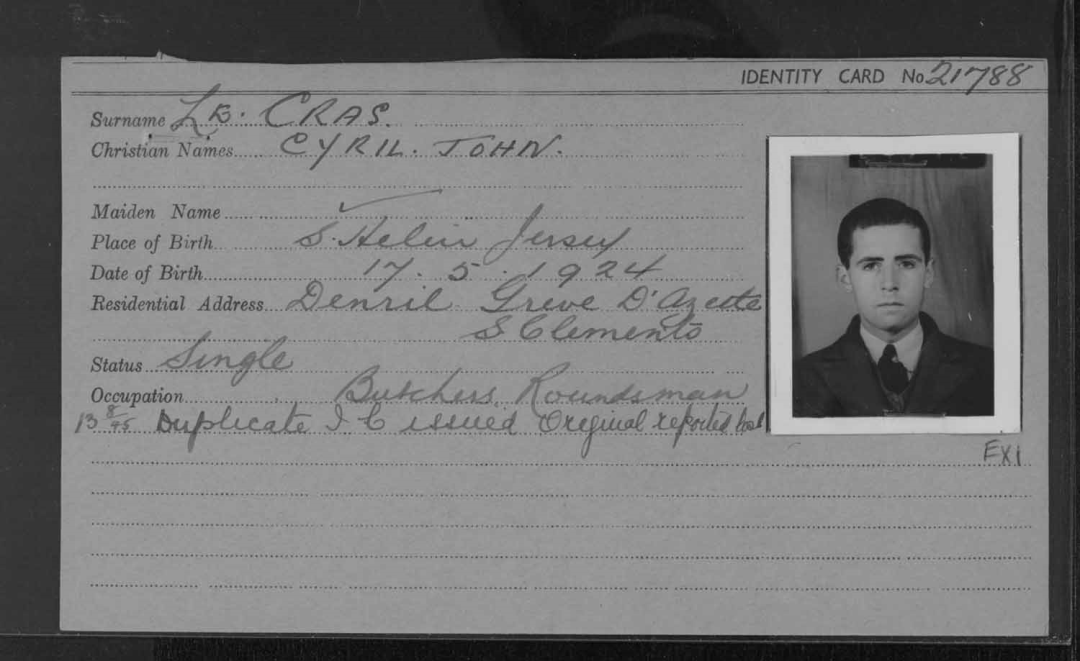 IDENTITY CARD No 21788
Surname LE. CRAS.
Christian Names CYRIL. JOHN.
Maiden Name
Place of Birth S. Helier Jersey
Date of Birth 17. 5. 1924
Residential Address Denril Greve D'Azette
S Clements
Status Single
Occupation Butchers Roundsman
13 8/45 Duplicate I C issued Original reported lost
EX1